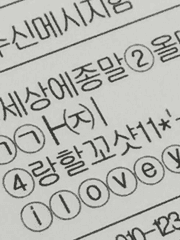 수신메시지함
세상에종말②올
ㄱㅏ㈈ㅣ
④랑할꼬샷11*
ⓘⓛⓞⓥⓔⓨ
010-123